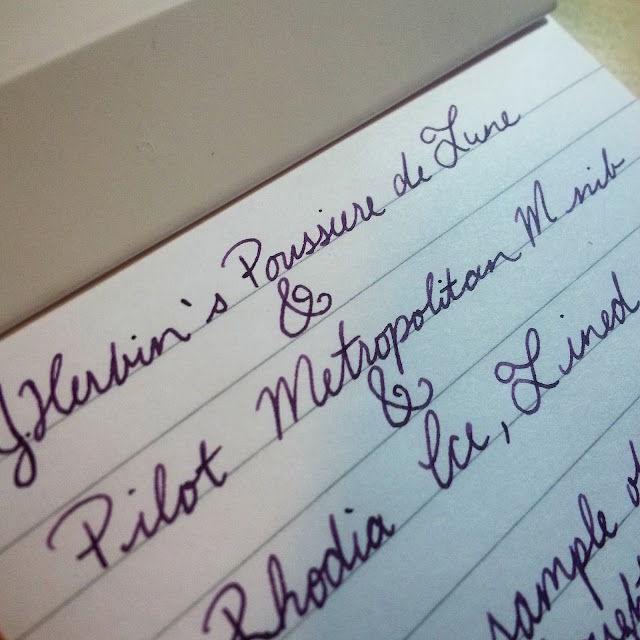 J.Herbin's Poussiere de Lune
&
Pilot Metropolitan M nib
&
Rhodia Ice, Lined
sample